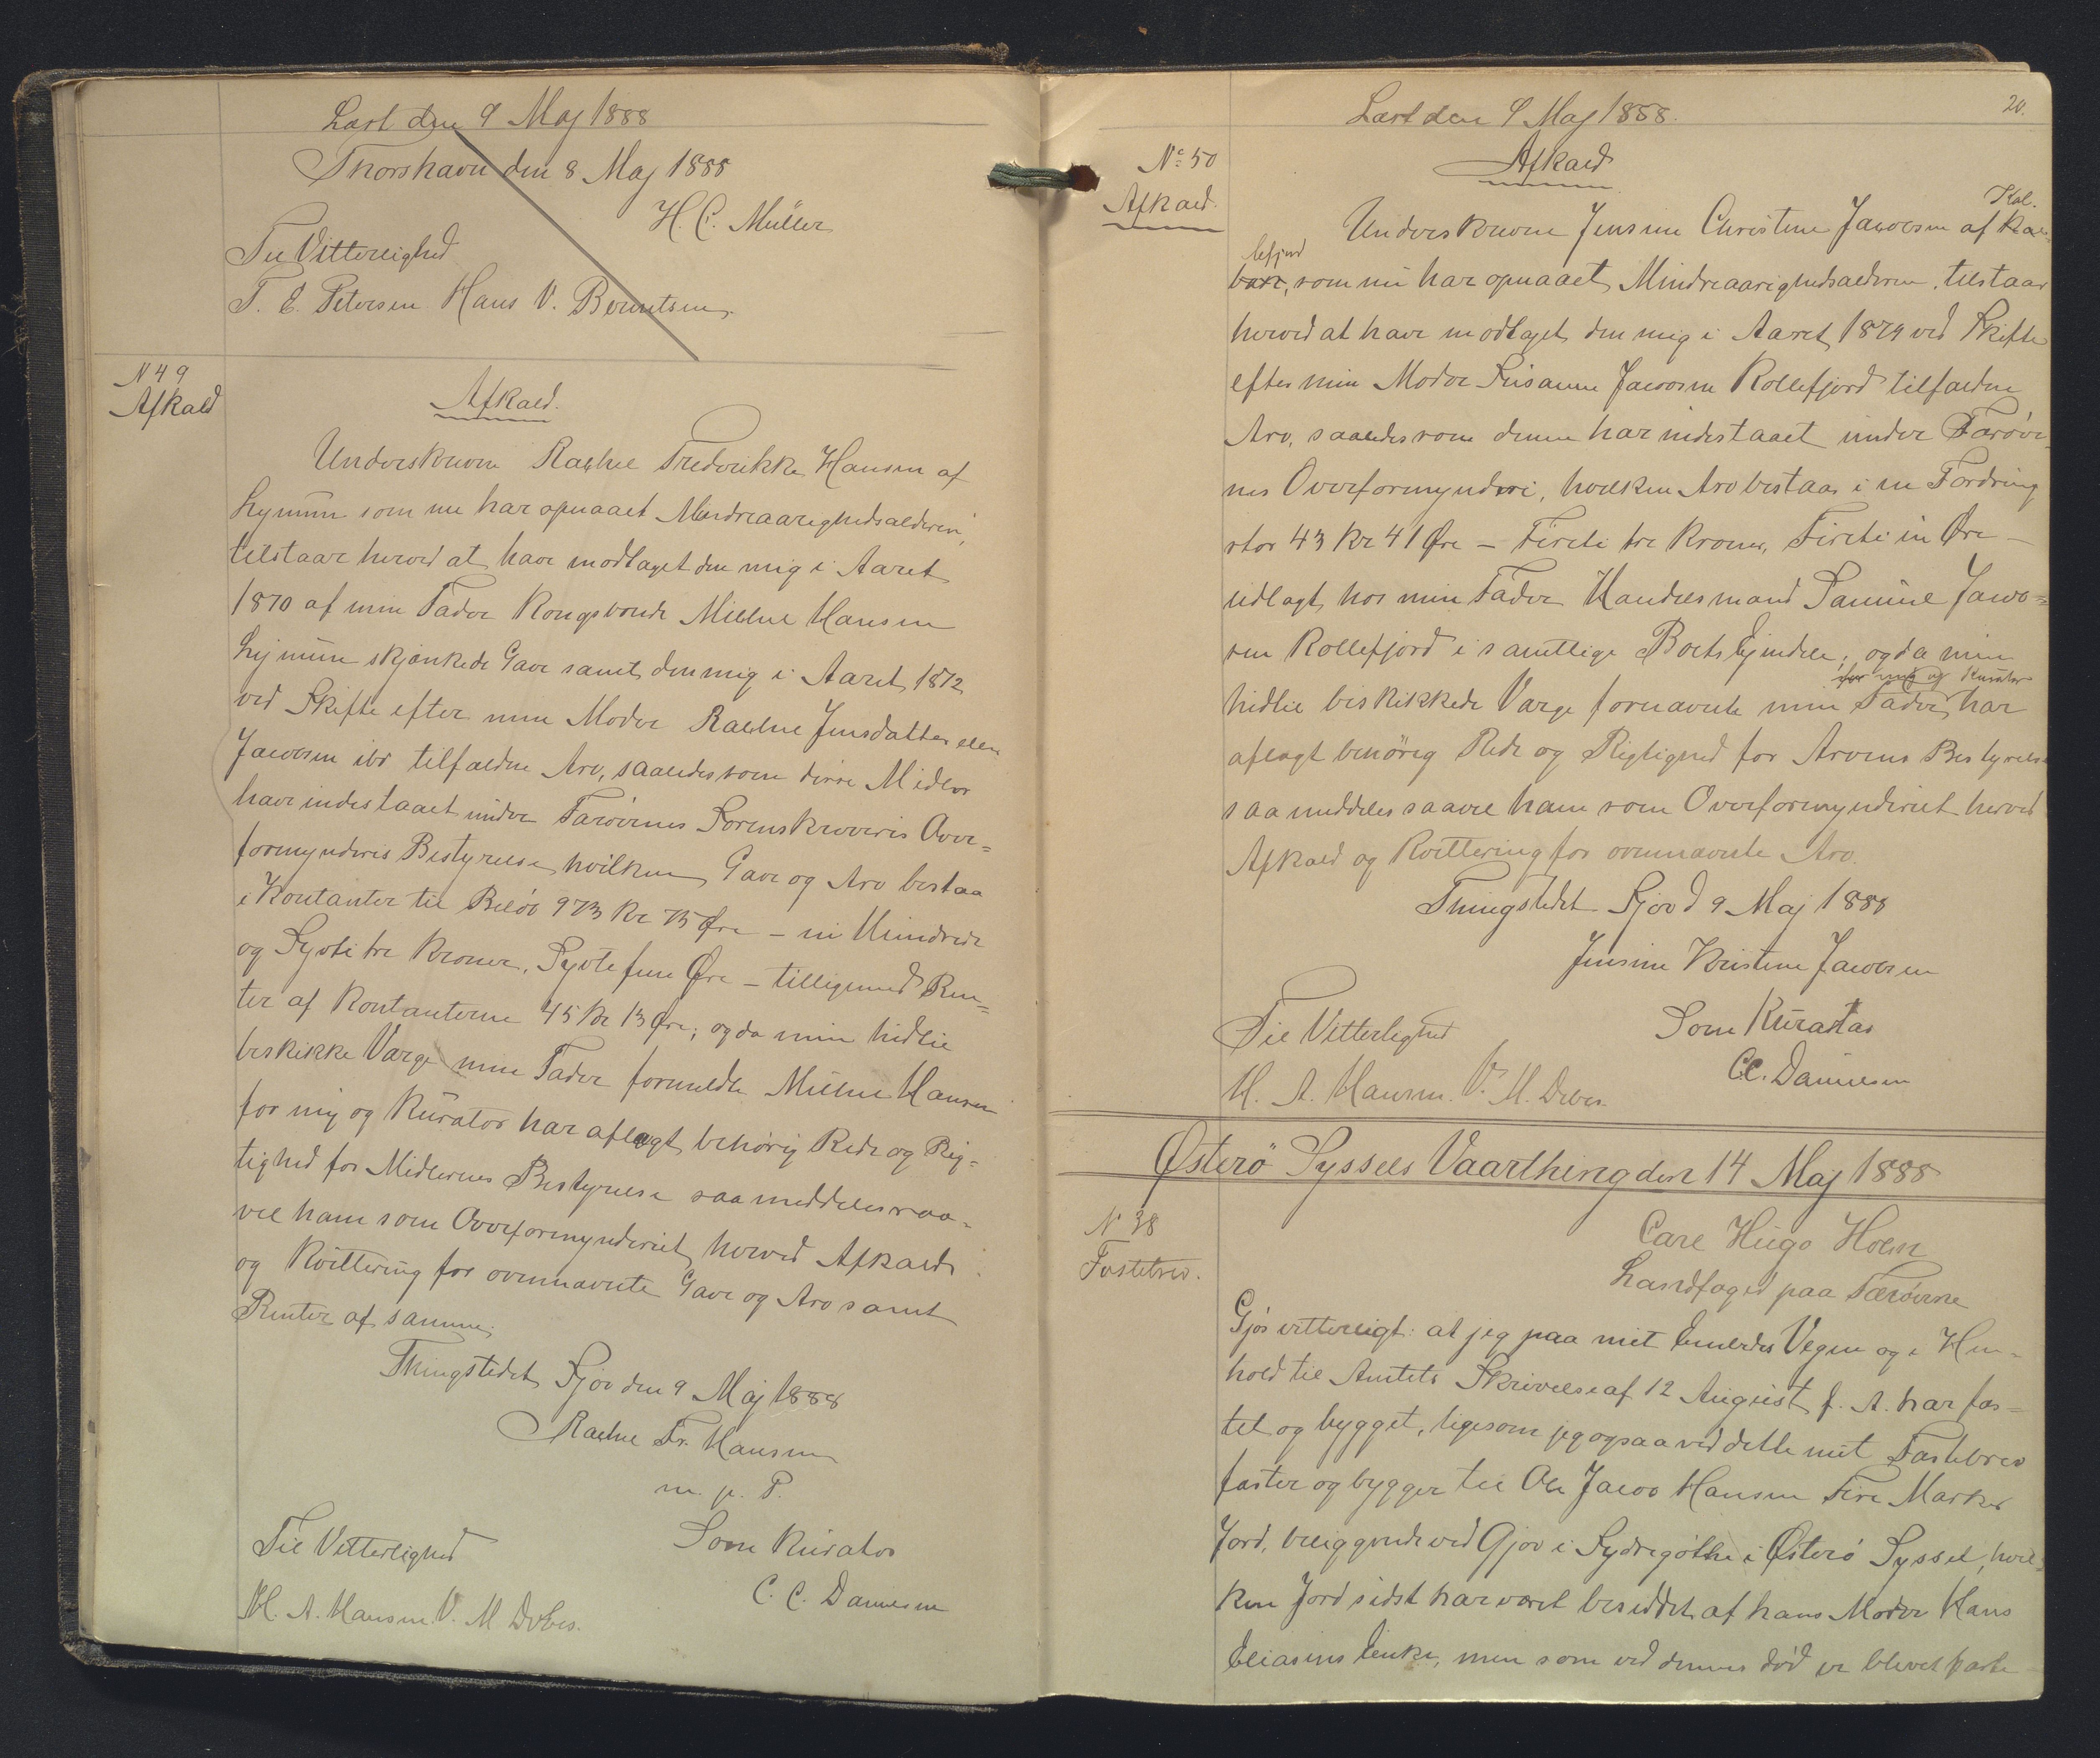 Læst den 9 Maj 1888
Thorshavn den 8 Maj 1888
H. C. Müller
Til Vitterlighed
T. E. Petersen Hans V. Berentsen
N 49
Afkald
Afkald.
Underskrevne Rachel Frederikke Hansen af
Lynum som nu har opnaaet Mindreaarighedsalderen,
tilstaar herved at have modtaget den mig i Aaret
1870 af min Fader Kongsbonde Michel Hansen
Lijnum skjænkede Gave samt den mig i Aaret 1872
ved Skifte efter min Moder Rachel Jensdatter eller
Jacobsen ibd tilfaldne Arv, saaledes som disse Midler
have indestaaet under Færøernes Sorenskriveris Over=
formynderis Bestyrelse hvilken Gave og Arv bestaa
i Kontanter til Beløb 973 Kr 75 Øre – ni Hundrede
og Syvti tre Kroner, Syvti fem Øre – tilligemed Ren=
ter af Kontanterne 45 Kr 13 Øre; og da min hidtil
beskikke Værge min Fader formeldte Michel Hansen
for mig og Kurator har aflagt behørig Rede og Rig=
tighed for Midlernes Bestyrelse saa meddeles saa=
vel ham som Overformynderiet herved Afkald
og Kvittering for ovennævnte Gave og Arv samt
Renter af samme.
Thingstedet Sjov den 9 Maj 1888
Rachel Fr. Hansen
m. p. P.
Til Vitterlighed
Som Kurator
H. A. Hansen. V. M Debes.
C. C. Danielsen
20.
Læst den 9 Maj 1888.
No 50
Afkald.
Afkald
Kol.
Underskrevne Jensine Christine Jacobsen af Kal
lefjord
bak, som nu har opnaaet Mindreaarighedsalderen, tilstaar
herved at have modtaget den mig i Aaret 1879 ved Skifte
efter min Moder Susanne Jacobsen Kollefjord tilfaldne
Arv, saaledes som denne har indestaaet under Færøer=
nes Overformynderi, hvilken Arv bestaar i en Fordring
stor 43 Kr 41 Øre – Firti tre Kroner, Firti en Øre –
udlagt hos min Fader Handelsmand Samuel Jacob=
sen Kollefjord i samtlige Boets Ejendele; og da min
for mig og Kurator
hidtil beskikkede Værge fornævnte min Fader har
aflagt behörig Rede og Rigtighed for Arvens Bestyrelse
saa meddeles saavel ham som Overformynderiet herved
Afkald og Kvittering for ovennævnte Arv.
Thingstedet Sjov d 9 Maj 1888
Jensine Kristine Jacobsen
Til Vitterlighed
Som Kurator
H. A. Hansen. V. M. Debes.
C.C. Danielsen
Østerö Syssels Vaarthing den 14 Maj 1888
N 38
Fæstebrev.
Carl Hugo Holm
Landfoged paa Færøerne
Gjör vitterligt: at jeg paa mit Embedes Vegne og i Hen=
hold til Amtets Skrivelse af 12 August f. A. har fæs=
tet og bygget, ligesom jeg ogsaa ved dette mit Fæstebrev
fæster og bygger til Ole Jacob Hansen Fire Marker
Jord, beliggende ved Gjov i Sydregöthe i Österö Syssel, hvil=
ken Jord sidst har været besiddet af hans Moder Hans
Eliasens Enke, men som ved dennes död er blevet fæste